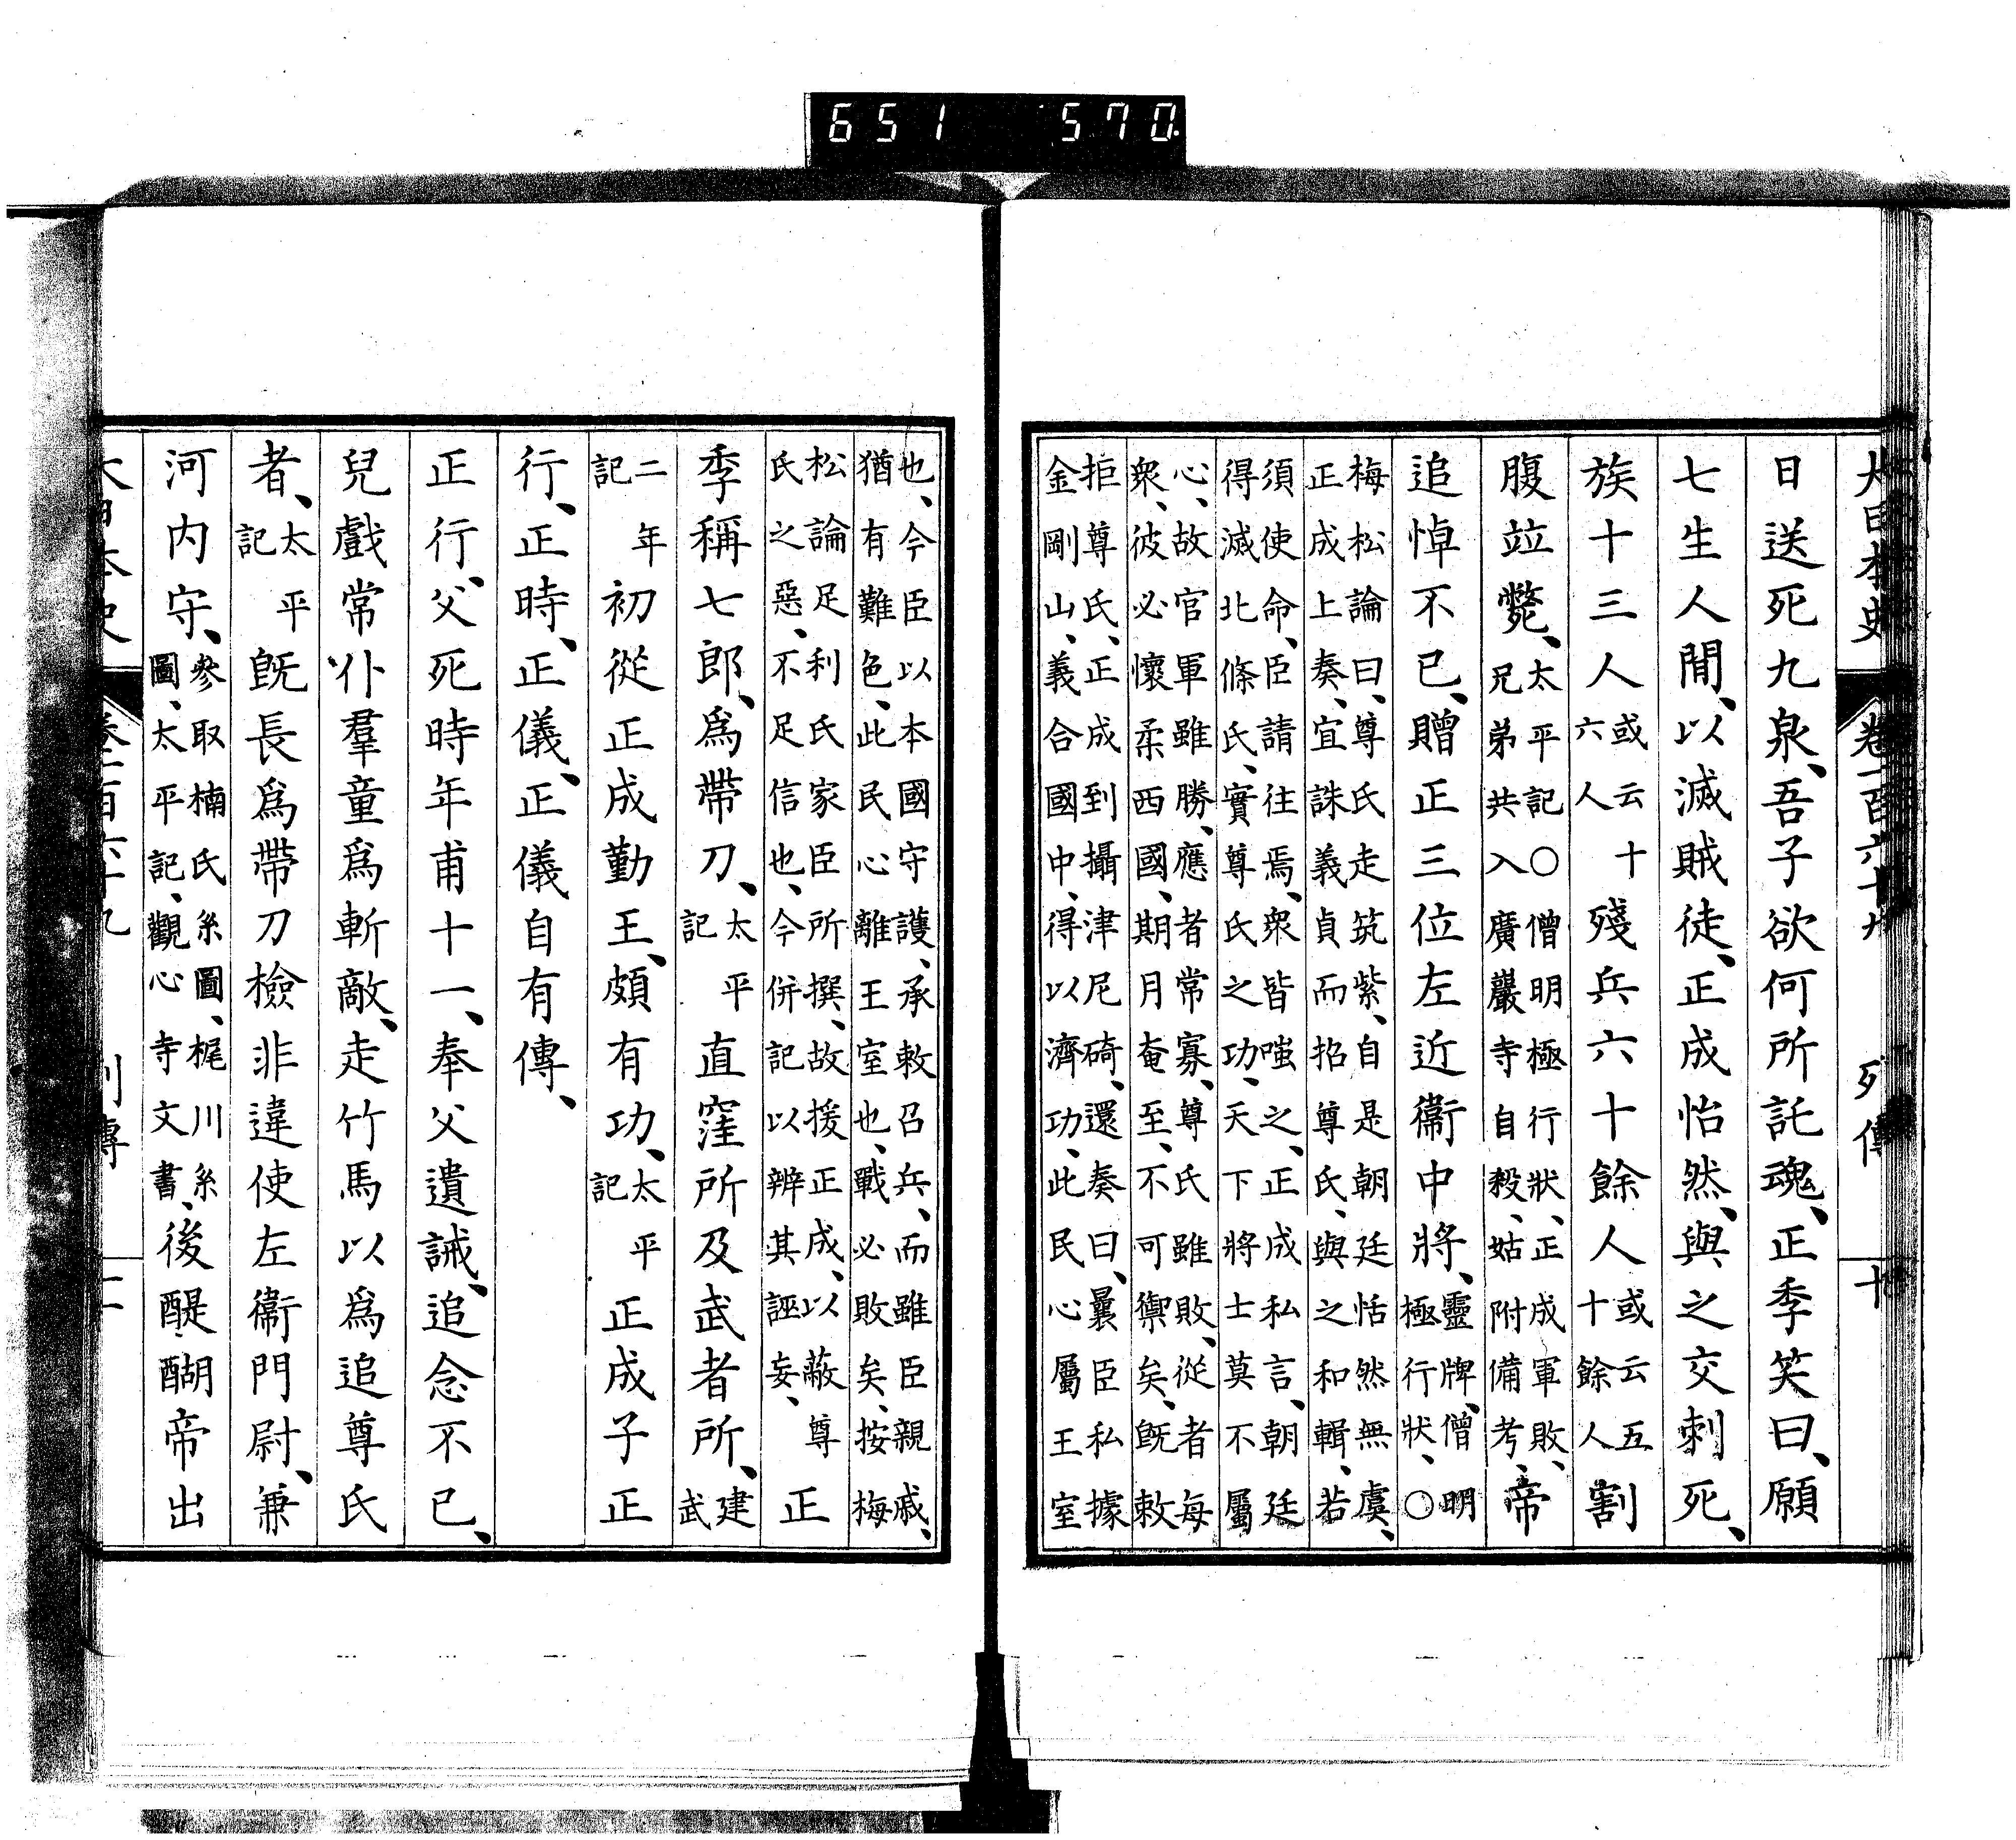 651 570
大日本史 卷一百六十九 列傳 十
日送死九泉、吾子欲何所託魂、正季笑曰、願
七生人閒、以滅賊徒、正成怡然、與之交刺死、
族十三人
或云十
六人
殘兵六十餘人
或云五
十餘人
割
腹竝斃、
太平記○僧明極行狀、正成軍敗、
兄弟共入廣嚴寺自殺、姑附備考、
帝
追悼不已、贈正三位左近衞中將、
靈牌、僧明
極行狀、○
梅松論曰、尊氏走筑紫、自是朝廷恬然無虞、
正成上奏、宜誅義貞而招尊氏、與之和輯、若
須使命、臣請往焉、衆皆嗤之、正成私言、朝廷
得滅北條氏、實尊氏之功、天下將士莫不屬
心、故官軍雖勝、應者常寡、尊氏雖敗、從者每
衆、彼必懷柔西國、期月奄至、不可禦矣、旣敕
拒尊氏、正成到攝津尼碕、還奏曰、曩臣私據
金剛山、義合國中、得以濟功、此民心屬王室
也、今臣以本國守護、承敕召兵、而雖臣親戚、
猶有難色、此民心離王室也、戰必敗矣、按梅
松論足利氏家臣所撰、故援正成、以蔽尊
氏之惡、不足信也、今併記以辨其誣妄、
正
季稱七郎、爲帶刀、
太平
記
直窪所及武者所、
建武
二年
記
初從正成勤王、頗有功、
太平
記
正成子正
行、正時、正儀、正儀自有傳、
正行、父死時年甫十一、奉父遺誡、追念不已、
兒戲常仆羣童爲斬敵、走竹馬以爲追尊氏
者、
太平
記
旣長爲帶刀檢非違使左衞門尉、兼
河内守、
參取楠氏系圖、梶川系
圖、太平記、觀心寺文書、
後醍醐帝出